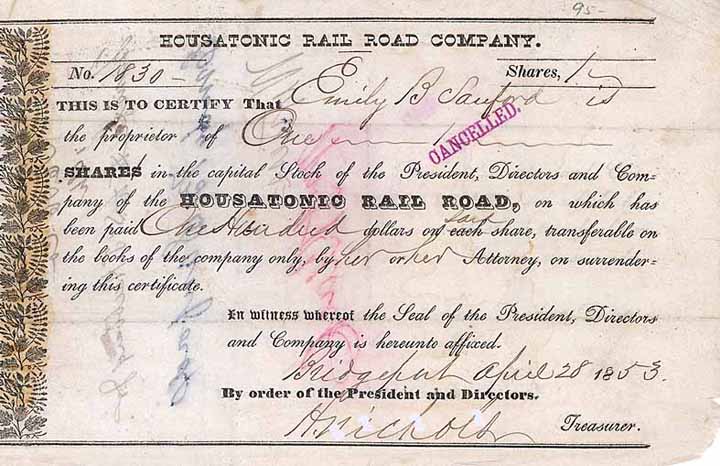 95-
HOUSATONIC RAIL ROAD COMPANY.
No. 1830- Shares, 1
THIS IS TO CERTIFY That Emily B Sanford is
the proprietor of One
CANCELLED.
SHARES in the capital Stock of the President, Directors and Com-
pany of the HOUSATONIC RAIL ROAD, on which has
been paid One Hundred dollars on each said share, transferable on
the books of the company only, by her or her Attorney, on surrender-
ing this certificate.
In witness whereof the Seal of the President, Directors
and Company is hereunto affixed.
Bridgeport April 28 1853.
By order of the President and Directors.
H Nichols Treasurer.